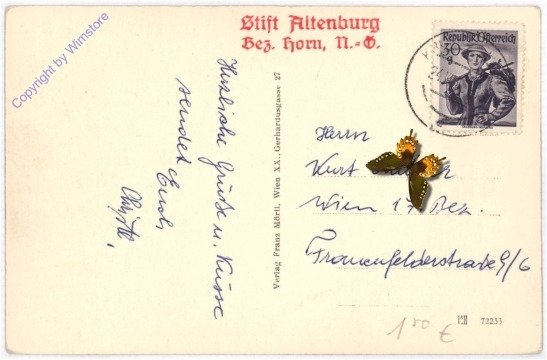 Copyright by Wimstore
Stift Altenburg
Bez. Horn, N.-Ö.
Herzliche Grüße u. Küsse
sendet Euch
Verlag Franz Mörtl, Wien XX., Gerhardusgasse 27
Republik Österreich
30
g
Herrn
Kurt
Wien 17. Bez.
Frauenfelderstraße 9/6
72255
1.50 €